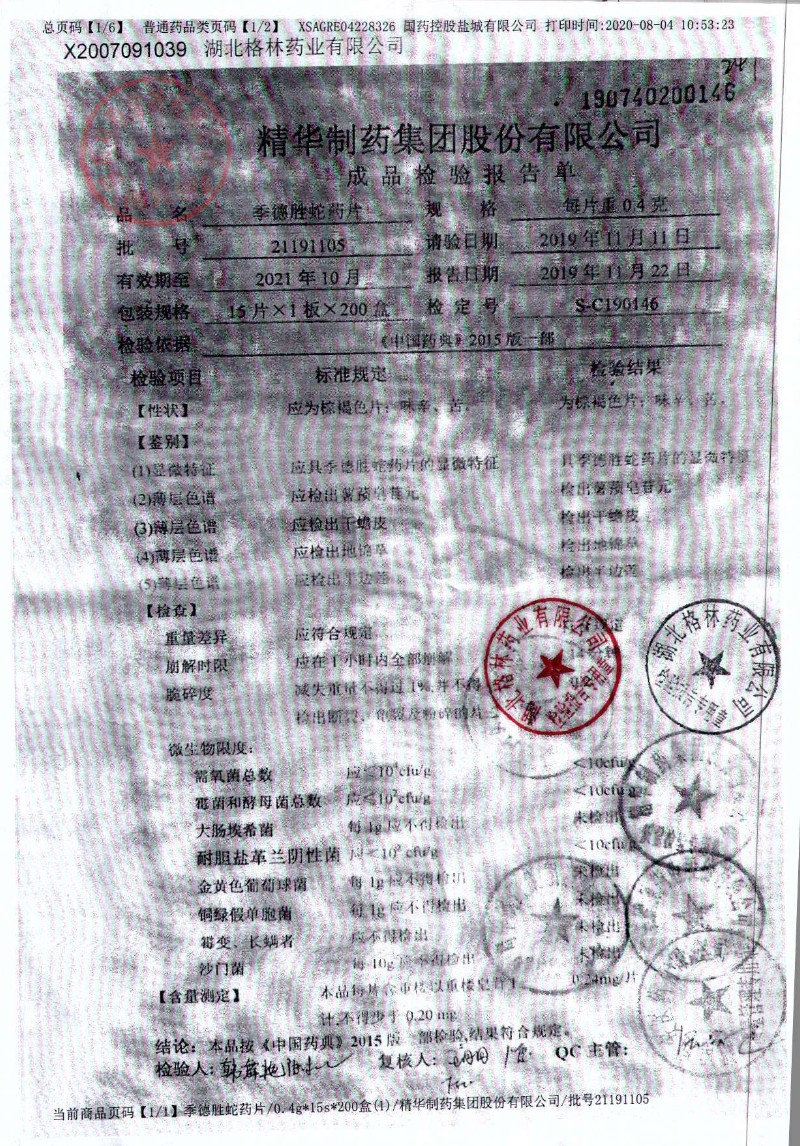 总页码【1/6】 普通药品类页码【1/2】 XSAGRE04228326 国药控股盐城有限公司 打印时间:2020-08-04 10:53:23
X2007091039 湖北格林药业有限公司
190740200146
精华制药集团股份有限公司
成品检验报告单
品 名 季德胜蛇药片 规 格 每片重0.4克
批 号 21191105 请验日期 2019年11月11日
有效期至 2021年10月 报告日期 2019年11月22日
包装规格 15片×1板×200盒 检定号 S-C190146
检验依据 《中国药典》2015版一部
检验项目 标准规定 检验结果
【性状】 应为棕褐色片；味辛、苦。 为棕褐色片；味辛、苦。
【鉴别】
(1)显微特征 应具季德胜蛇药片的显微特征 具季德胜蛇药片的显微特征
(2)薄层色谱 应检出薯蓣皂苷元 检出薯蓣皂苷元
(3)薄层色谱 应检出干蟾皮 检出干蟾皮
(4)薄层色谱 应检出地锦草 检出地锦草
(5)薄层色谱 应检出半边莲 检出半边莲
【检查】
重量差异 应符合规定
崩解时限 应在1小时内全部崩解
脆碎度 减失重量不得过1%,并不得
检出断裂、龟裂及粉碎的片
微生物限度:
需氧菌总数 cfu/g <10cfu/g
霉菌和酵母菌总数 应≤10²cfu/g <10cfu/g
大肠埃希菌 每1g应不得检出 未检出
耐胆盐革兰阴性菌 cfu/g <10cfu/g
金黄色葡萄球菌 每1g应不得检出 未检出
铜绿假单胞菌 每1g应不得检出 未检出
霉变、长螨者 应不得检出 未检出
沙门菌 每10g应不得检出 未检出
【含量测定】 本品每片含重楼以重楼皂苷 0.24mg/片
计,不得少于0.20mg
结论: 本品按《中国药典》2015版一部检验,结果符合规定。
检验人: 复核人: QC主管:
湖北格林药业有限公司
湖北格林药业有限公司
当前商品页码【1/1】季德胜蛇药片/0.4g*15s*200盒(1)/精华制药集团股份有限公司/批号21191105